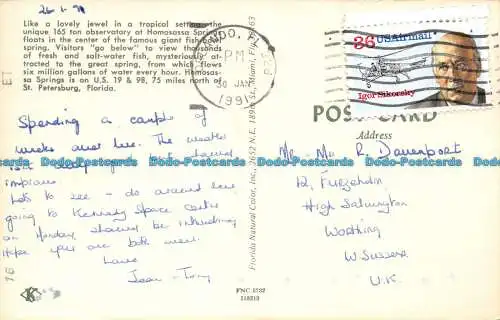 26-1-91
Like a lovely jewel in a tropical setting the
unique 165 ton observatory at Homosassa Springs
floats in the center of the famous giant fish bowl
spring. Visitors "go below" to view thousands
of fresh and salt-water fish, mysteriously at-
tracted to the great spring, from which flows
six million gallons of water every hour. Homosas-
sa Springs is on U.S. 19 & 98, 75 miles north of
St. Petersburg, Florida.
PM
30 JAN
1991
36 USAirmail
Igor Sikorsky
POST CARD
Address
Spending a couple of
weeks over here. The weather
improves
Lots to see - do around here
going to Kennedy Space Center
on Monday, should be interesting
Hope you are both well.
Love
Jean & Tony
Florida Natural Color, Inc., 2652 N.E. 189th St., Miami, Fla. 33163
Mr & Mrs R. Davenport
12, Furzeholm
High Salvington
Worthing
W. Sussex
U.K.
K
Dodo-Postcards Dodo-Postcards Dodo-Postcards Dodo-Postcards Dodo-Postcards